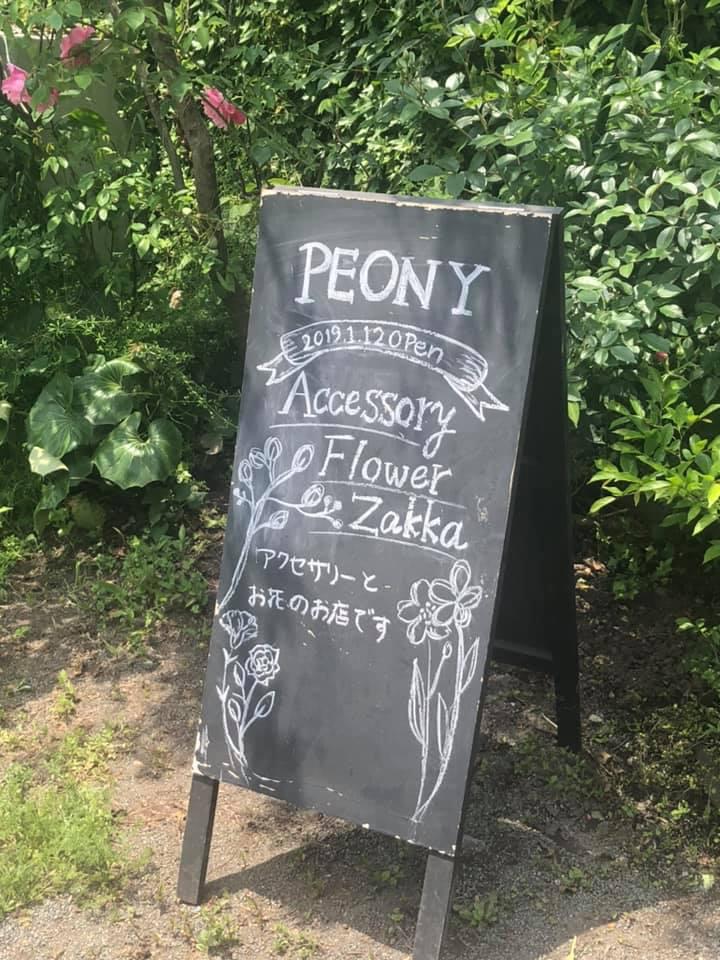 PEONY
2019.1.12 OPen
Accessory
Flower
Zakka
アクセサリーと
お花のお店です